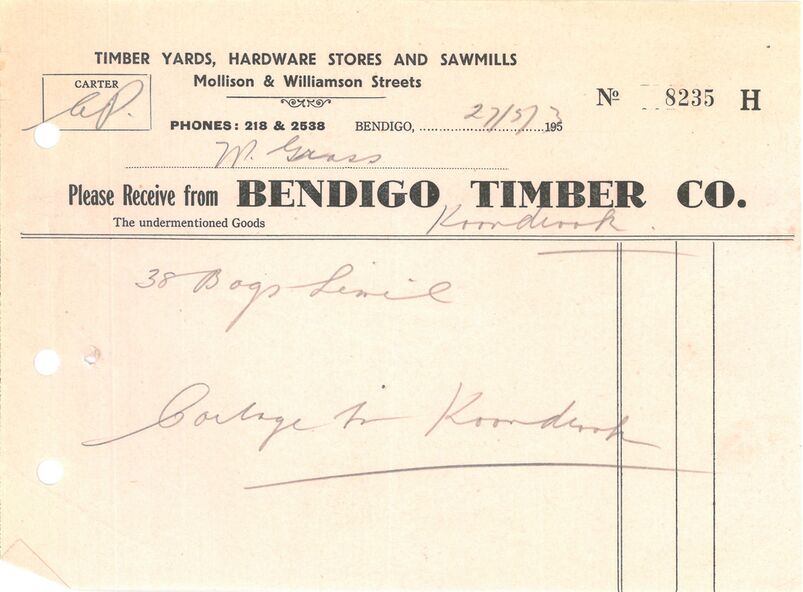 TIMBER YARDS, HARDWARE STORES AND SAWMILLS
Mollison & Williamson Streets
CARTER
Nº 8235 H
PHONES: 218 & 2538 BENDIGO, 27/5/ 195
W. Grass
Please Receive from BENDIGO TIMBER CO.
The undermentioned Goods Koondrook.
38 Bags
Cartage to Koondrook